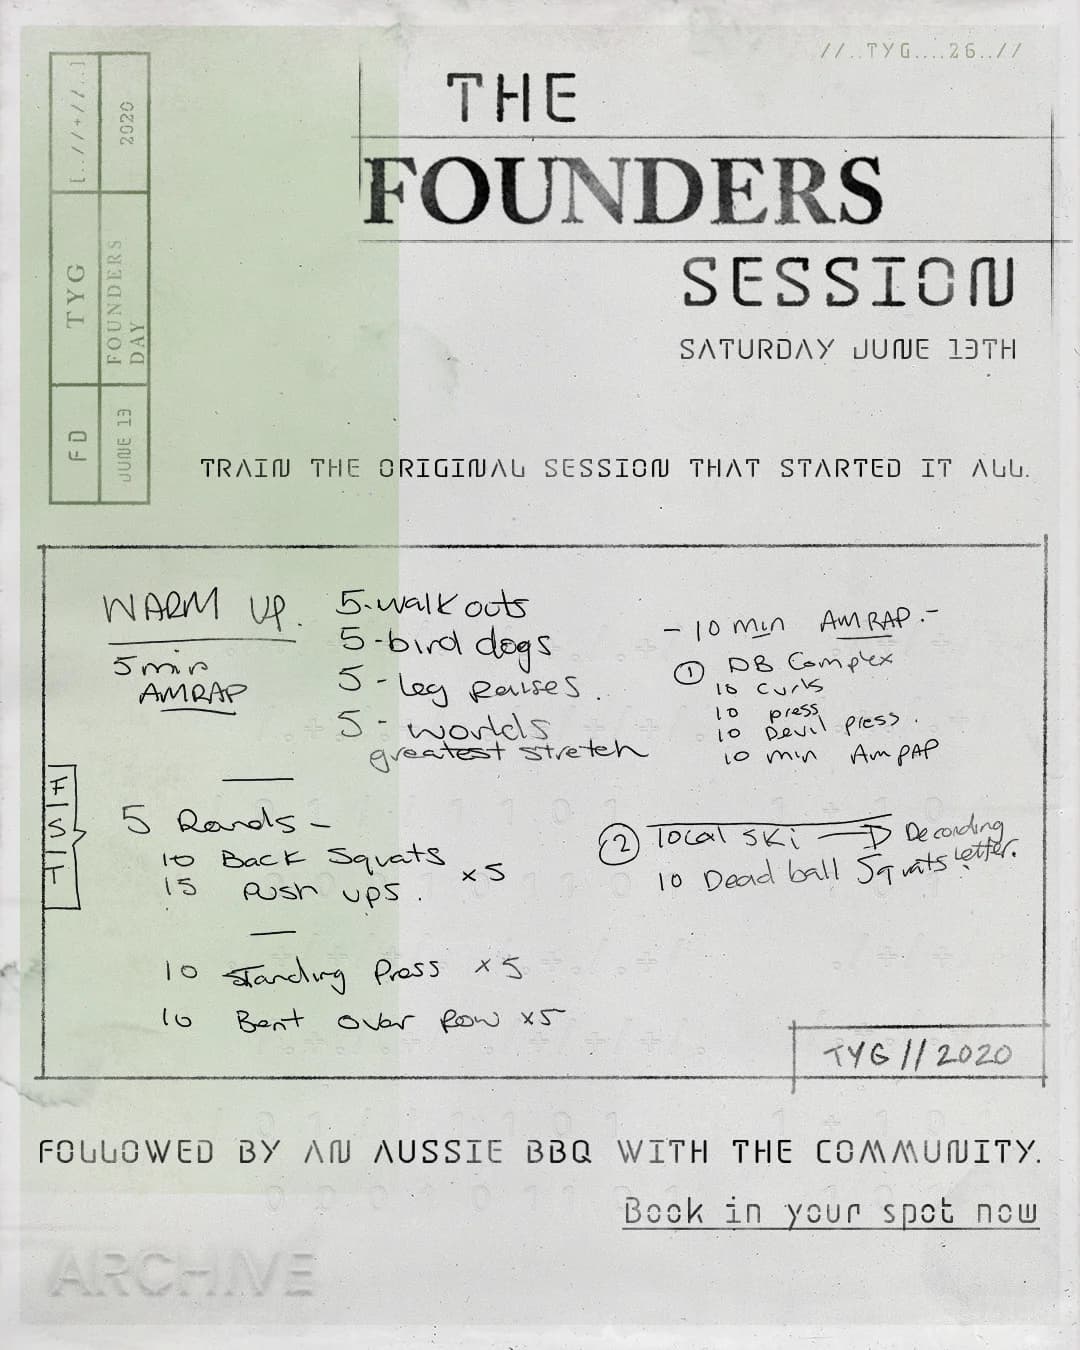 //..TYG....26..//
[..//+//..]
2020
TYG
FOUNDERS
DAY
FD
JUNE 13
THE
FOUNDERS
SESSION
SATURDAY JUNE 13TH
TRAIN THE ORIGINAL SESSION THAT STARTED IT ALL.
WARM UP.
5 min
AMRAP
5-walk outs
5-bird dogs
5-leg raises.
5-worlds
greatest stretch
FST
5 Rounds-
10 Back Squats
15 Push ups.
x5
10 Standing Press x5
10 Bent Over Row x5
- 10 min AMRAP.-
1 DB Complex
10 curls
10 press
10 Devil press.
10 min AMRAP
2 Total ski → Decoding
Letter.
10 Dead ball Squats
TYG//2020
FOLLOWED BY AN AUSSIE BBQ WITH THE COMMUNITY.
Book in your spot now
ARCHIVE